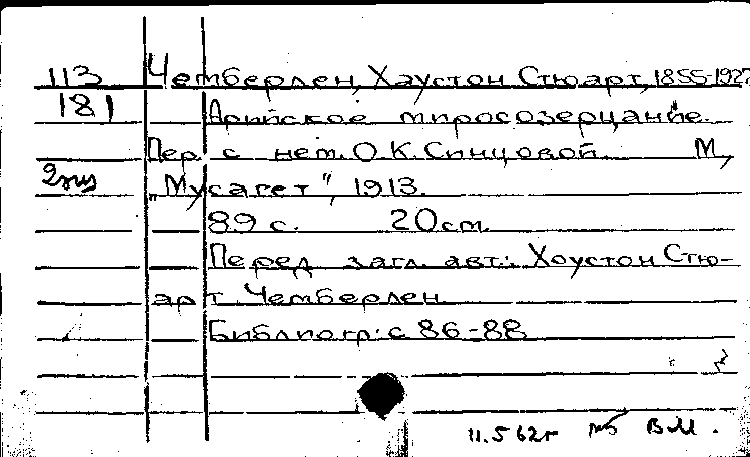 113 Чемберлен, Хаустон Стюарт, 1855-1927
181 Арийское миросозерцание.
Пер. с нем. О.К. Синцовой. М,
2экз „Мусагет“, 1913.
89 с. 20 см.
Перед загл. авт.: Хоустон Стю-
арт Чемберлен
Библиогр: с 86-88
11.5 62г ВМ.